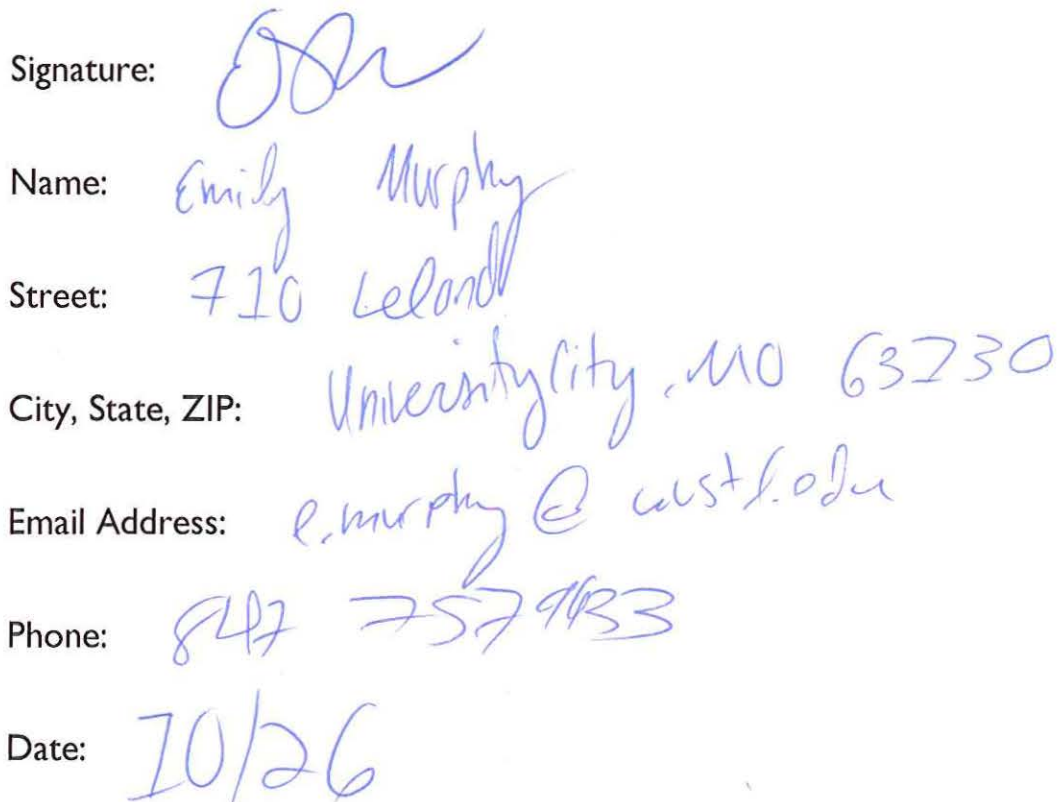 Signature:
Name: Emily Murphy
Street: 710 Leland
City, State, ZIP: University City, MO 63130
Email Address: e.murphy @ wustl.edu
Phone: 847 757 9433
Date: 10/26